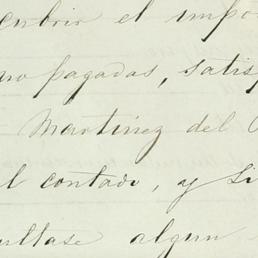 cubrir el impo
no pagadas, satis
Martínez del
al contado, y si
sultase algun